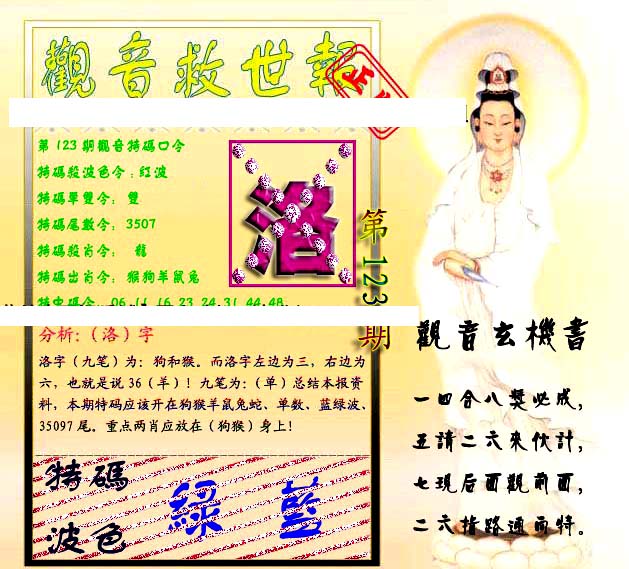 觀音救世報
第123期觀音特碼口令
特碼殺波色令：紅波
特碼單雙令： 雙
特碼尾數令： 3507
特碼殺肖令： 龍
特碼出肖令： 猴狗羊鼠兔
特中碼令 06.11.16.23.24.31.44.48
洛
第123期
分析：（洛）字
洛字（九笔）为：狗和猴。而洛字左边为三，右边为
六，也就是说 36（羊）！九笔为：（单）总结本报资
料，本期特码应该开在狗猴羊鼠兔蛇、单数、蓝绿波、
35097 尾。重点两肖应放在（狗猴）身上！
特碼
波色
綠 藍
觀音玄機書
一四合八獎必成，
五請二六來伙計，
七現后面觀前面，
二六指路通而特。